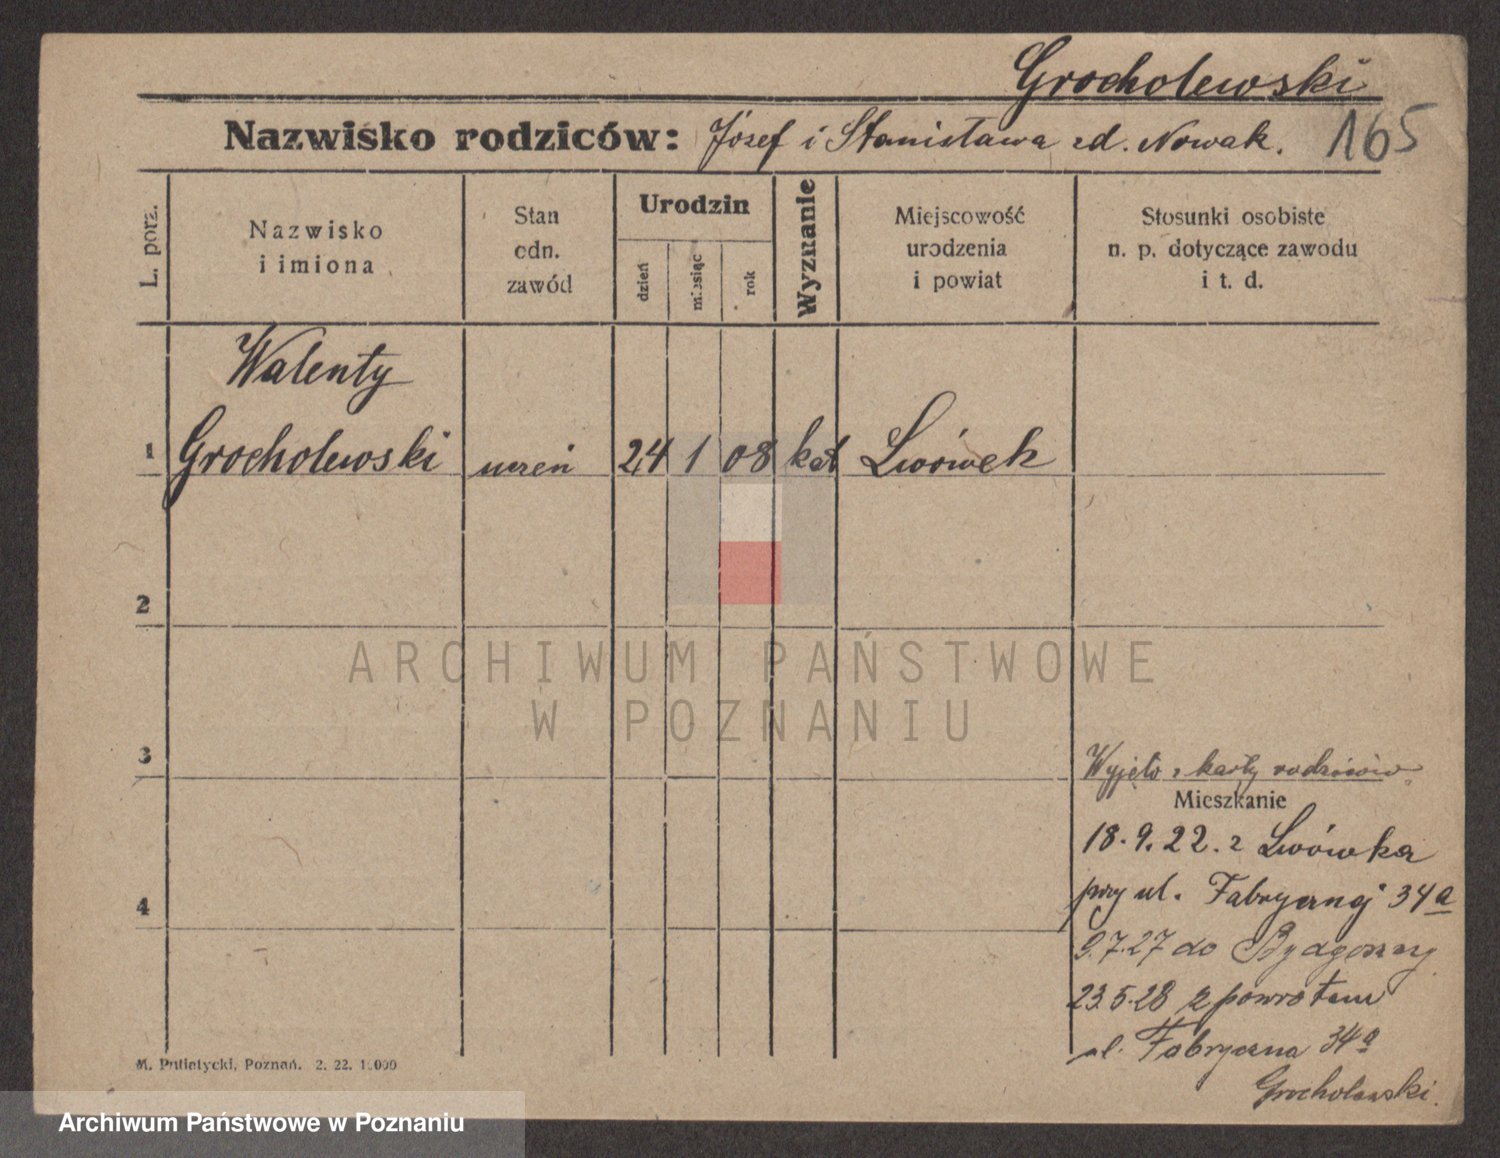 Grocholewski
Nazwisko rodziców: Józef i Stanisława zd. Nowak.
165
L. porz.
Nazwisko
i imiona
Stan
odn.
zawód
Urodzin
dzień
miesiąc
rok
Wyznanie
Miejscowość
urodzenia
i powiat
Stosunki osobiste
n. p. dotyczące zawodu
i t. d.
Walenty
1 Grocholewski uczeń 24 1 08 kat Lwówek
2
ARCHIWUM PAŃSTWOWE
W POZNANIU
3
Wyjęto z karty rodziców
Mieszkanie
18.9.22. z Lwówka
przy ul. Fabrycznej 34a
4
9.7.27 do Bydgoszczy
23.5.28 z powrotem
ul. Fabryczna 34a
Grocholewski.
M. Putiatycki, Poznań. 2. 22. 10000
Archiwum Państwowe w Poznaniu